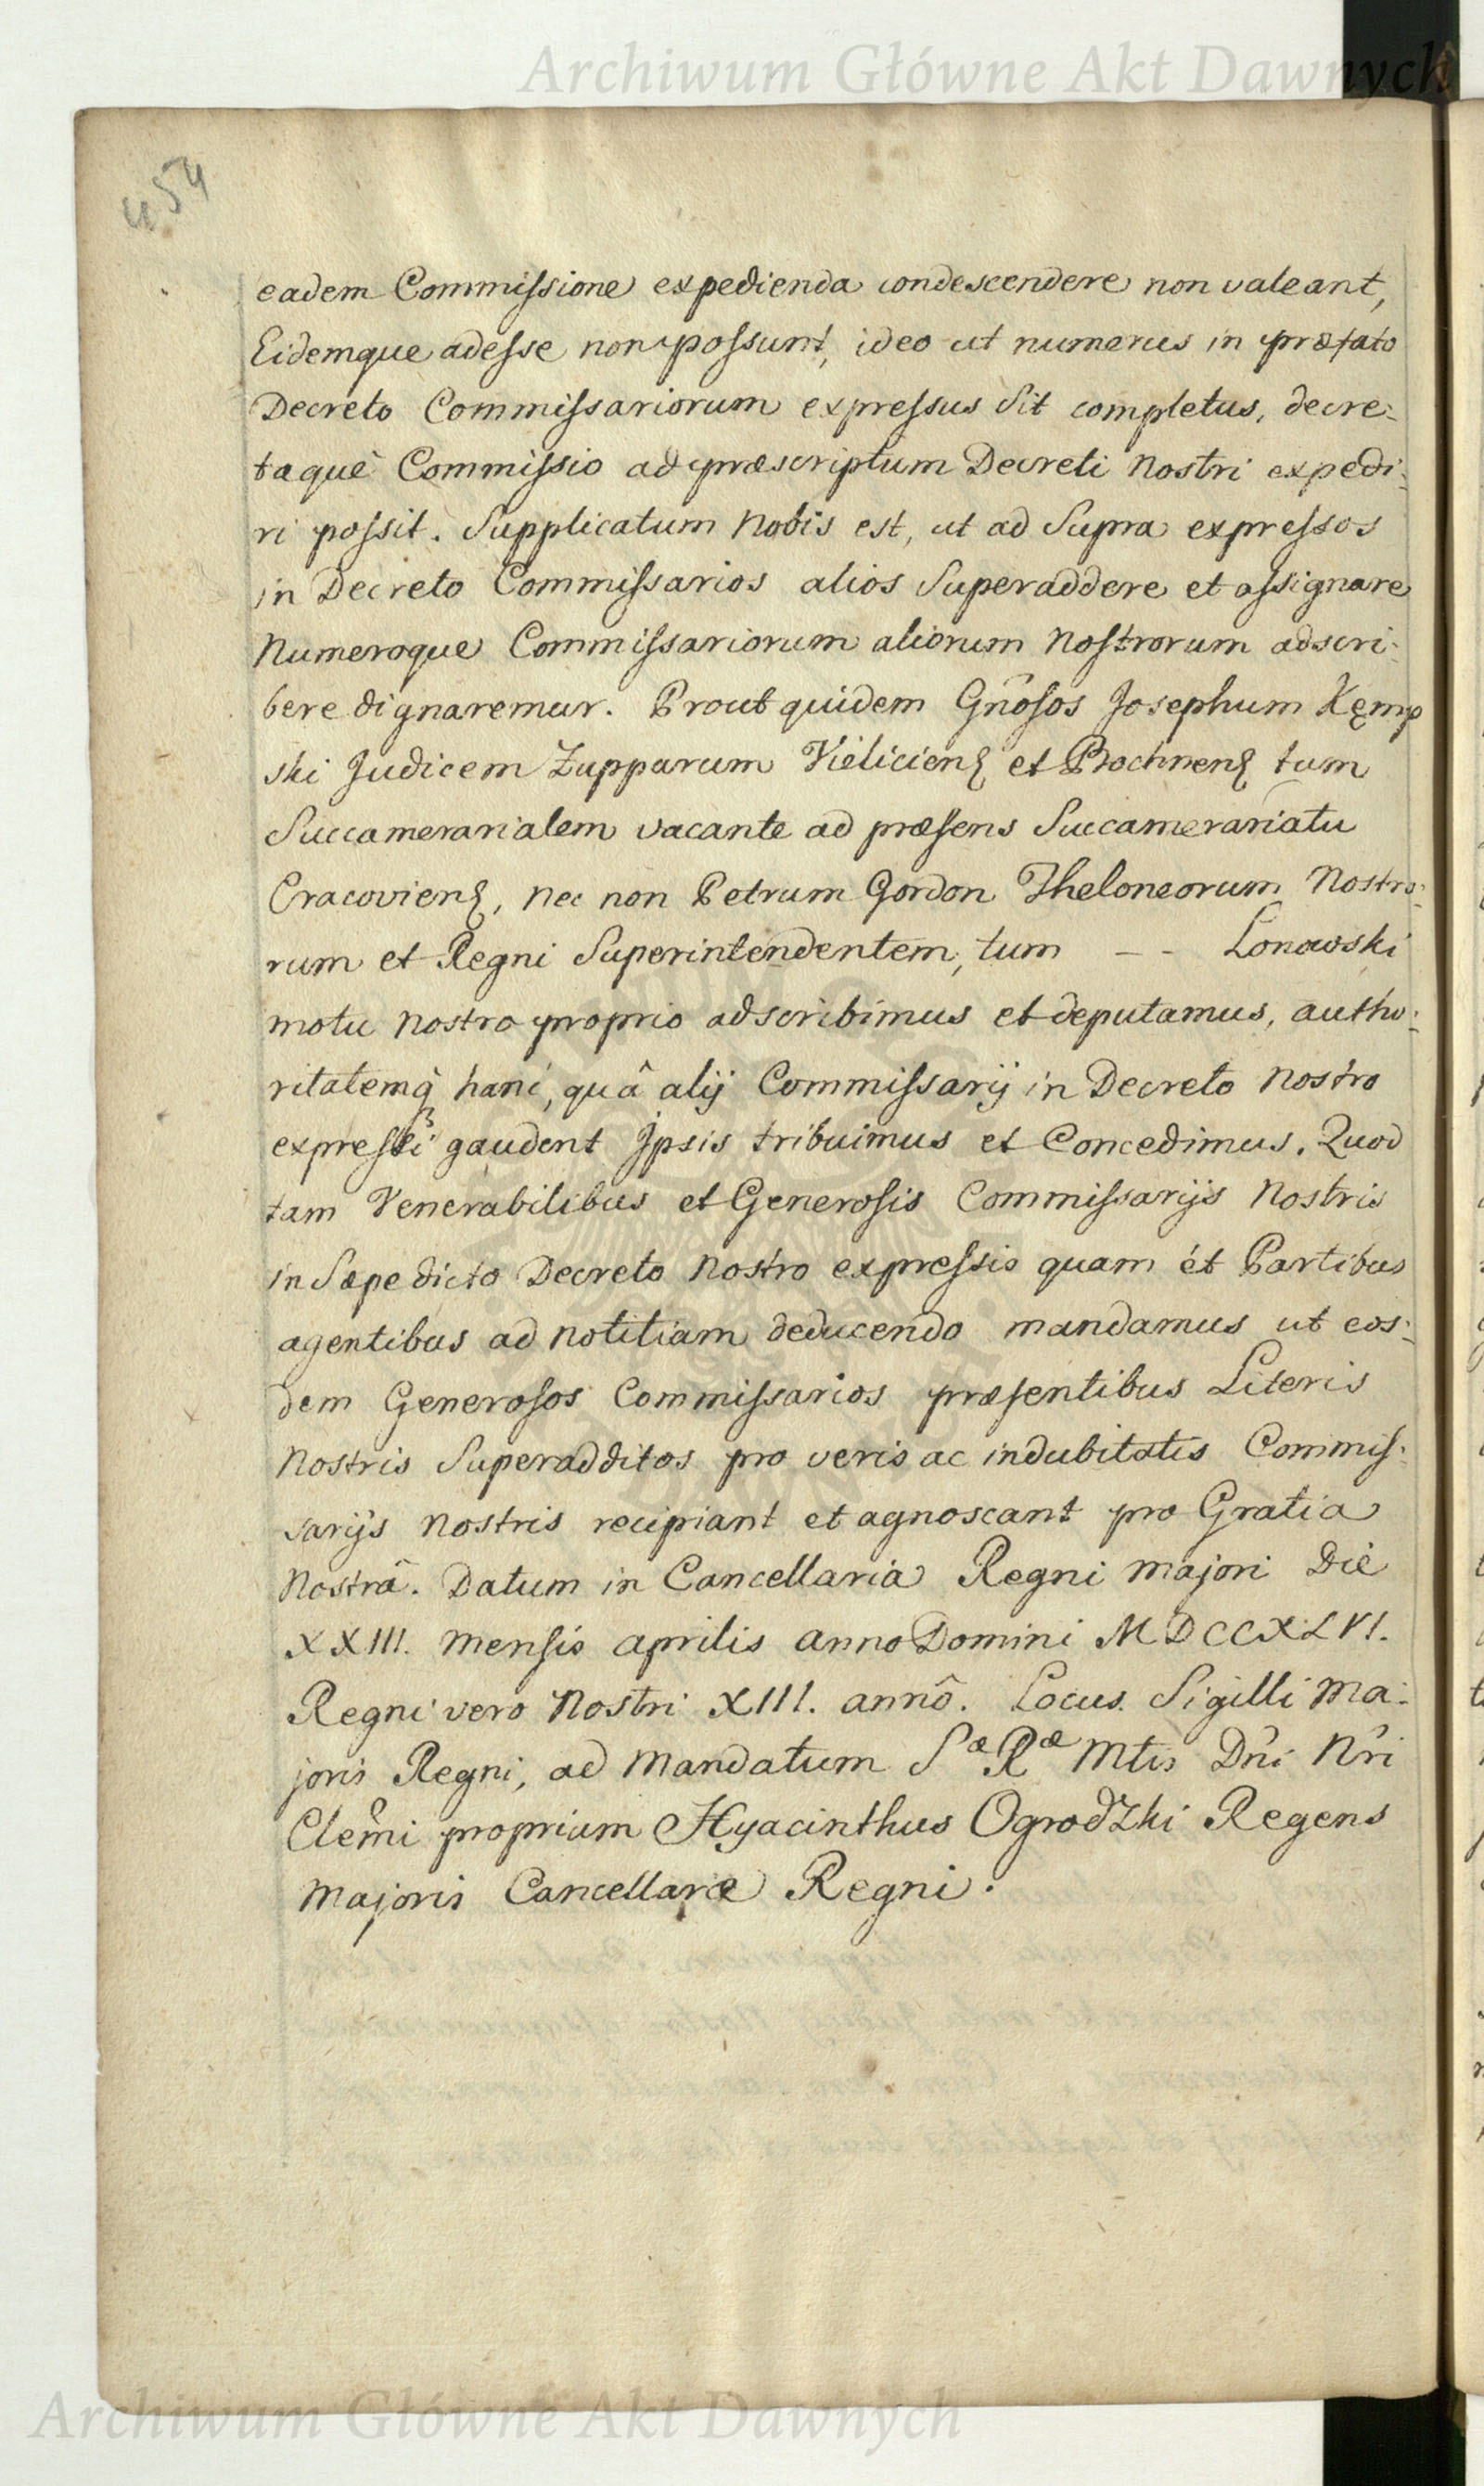 Archiwum Główne Akt Dawnych
454
eadem Commiſsione expedienda condescendere non valeant,
Eidemque adeſse non poſsunt, ideo ut numerus in præfato
Decreto Commiſsariorum expreſsus Sit completus, decre-
taquè Commiſsio ad præscriptum Decreti Nostri expedi-
ri poſsit. Supplicatum Nobis est, ut ad Supra expreſsos
in Decreto Commiſsarios alios Superaddere et aſsignare
Numeroque Commiſsariorum aliorum Noſtrorum adscri-
bere dignaremur. Prout quidem Gn̄oſos Josephum Kęmp
ski Judicem Zupparum Vieliciens et Bochnens tum
Succamerarialem vacante ad præſens Succamerariatu
Cracoviens, Nec non Petrum Gordon Theloneorum Nostro-
rum et Regni Superintendentem, tum — - Lonowski
motu Nostro proprio adscribimus et deputamus, autho-
ritatemq̀ hanc, quâ alij Commiſsarij in Decreto Nostro
expreſsi gaudent Ipsis tribuimus et Concedimus. Quod
tam Venerabilibus et Generoſis Commiſsarijs Nostris
in Sæpe dicto Decreto Nostro expreſsis quam èt Partibus
agentibus ad notitiam deducendo mandamus ut eos-
dem Generoſos Commiſsarios præſentibus Literis
Nostris Superadditos pro veris ac indubitatis Commiſ-
sarijs Nostris recipiant et agnoscant pro Gratia
Nostrâ. Datum in Cancellaria Regni Majori Diè
XXIII. Menſis Aprilis Anno Domini MDCCXLVI.
Regni vero Nostri XIII. annô. Locus Sigilli Ma-
joris Regni, ad Mandatum Sæ Ræ Mtis Dn̄i Nr̄i
Clem̄i proprium Hyacinthus Ogrodzki Regens
Majoris Cancellaræ Regni.
Archiwum Główne Akt Dawnych